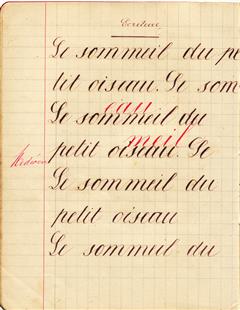 Ecriture
Le sommeil du pe
tit oiseau. Le som
Le sommeil du
eau
petit oiseau. Le
meil
Le sommeil du
petit oiseau
Le sommeil du